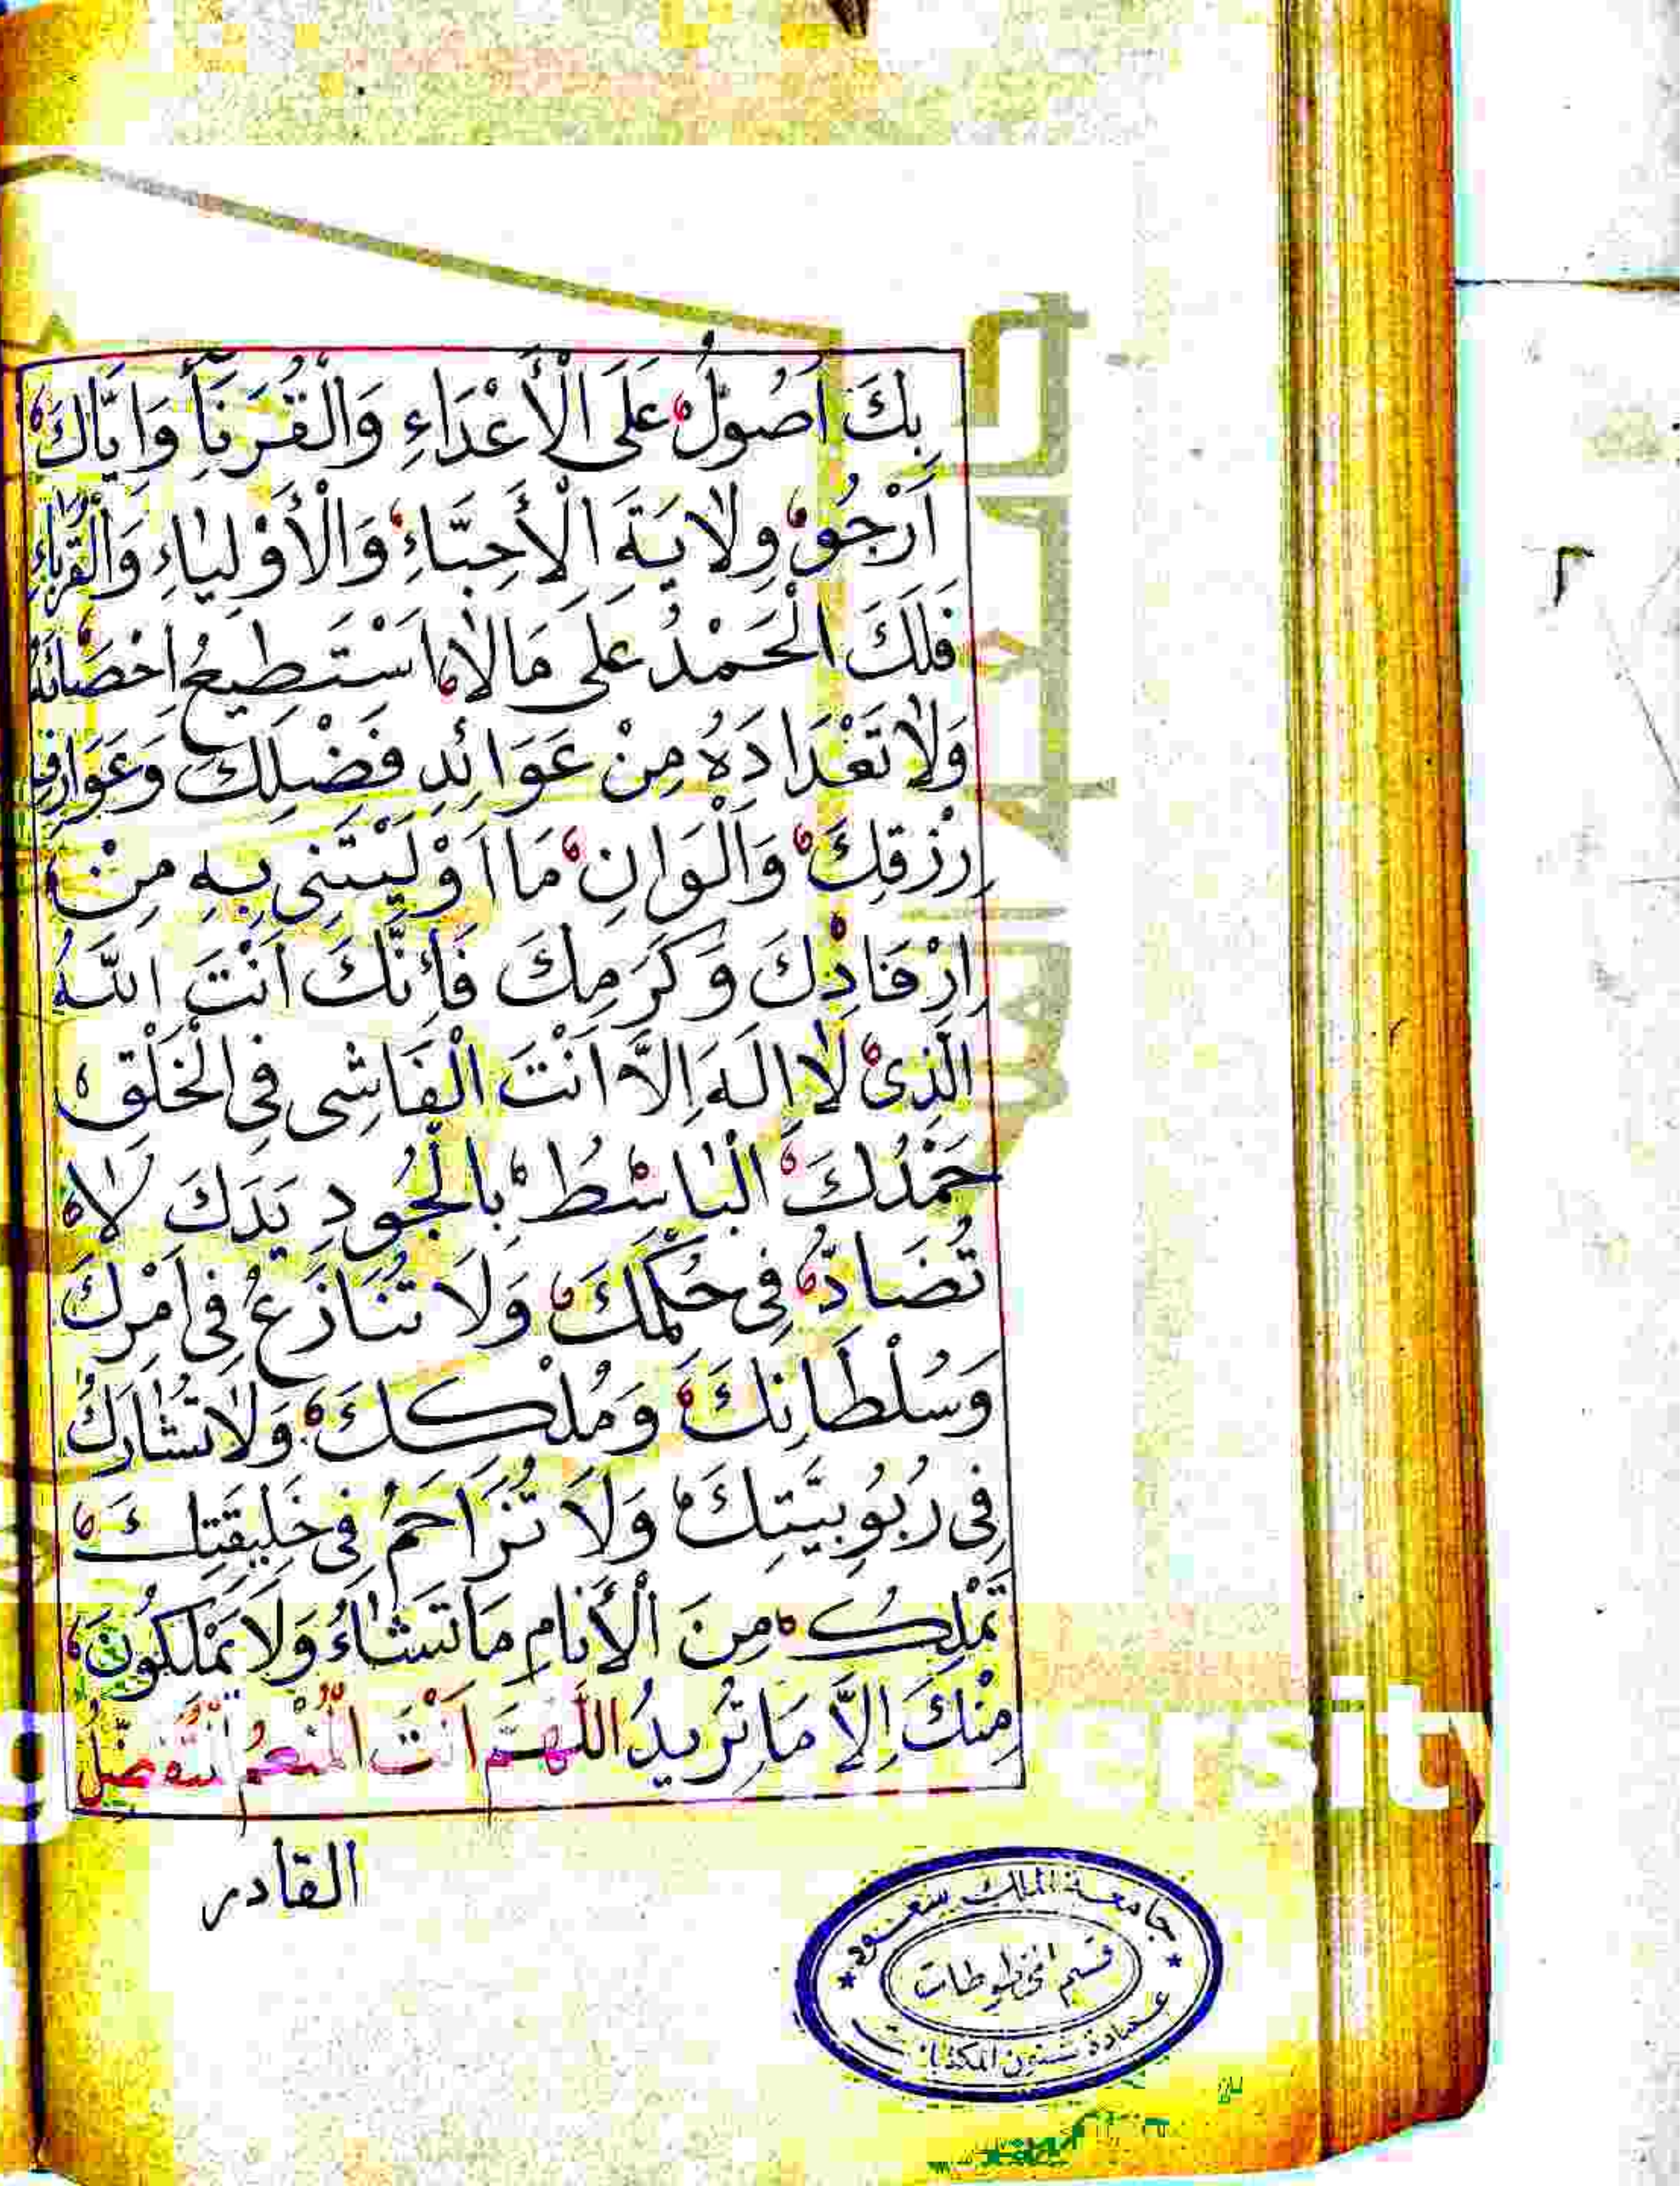 بِكَ اَصُولُ عَلَى الْأَعْدَاءِ وَالْقُرَبَآءِ وَاِيَّاكَ
اَرْجُو وِلَايَةَ الْأَحِبَّاءِ وَالْأَوْلِيَاءِ وَالْقُرَبَاءِ
فَلَكَ الْحَمْدُ عَلَى مَا لَا اَسْتَطِيعُ اِحْصَائَهُ
وَلَا تَعْدَادَهُ مِنْ عَوَائِدِ فَضْلِكَ وَعَوَارِفِ
رِزْقِكَ وَاَلْوَانِ مَا اَوْلَيْتَنِي بِهِ مِنْ
اِرْفَادِكَ وَكَرَمِكَ فَاِنَّكَ اَنْتَ اللّٰهُ
الَّذِي لَا اِلَهَ اِلَّا اَنْتَ الْفَاشِي فِي الْخَلْقِ
حَمْدُكَ الْبَاسِطُ بِالْجُودِ يَدَكَ لَا
تُضَادُّ فِي حُكْمِكَ وَلَا تُنَازَعُ فِي اَمْرِكَ
وَسُلْطَانِكَ وَمُلْكِكَ وَلَا تُشَارَكُ
فِي رُبُوبِيَّتِكَ وَلَا تُزَاحَمُ فِي خَلِيقَتِكَ
تَمْلِكُ مِنَ الْأَنَامِ مَا تَشَاءُ وَلَا يَمْلِكُونَ
مِنْكَ اِلَّا مَا تُرِيدُ اللّٰهُمَّ اَنْتَ الْمُنْعِمُ الْمُتَفَضِّلُ
القادر
جامعة الملك سعود
قسم المخطوطات
عمادة شئون المكتبات
٢
ersity